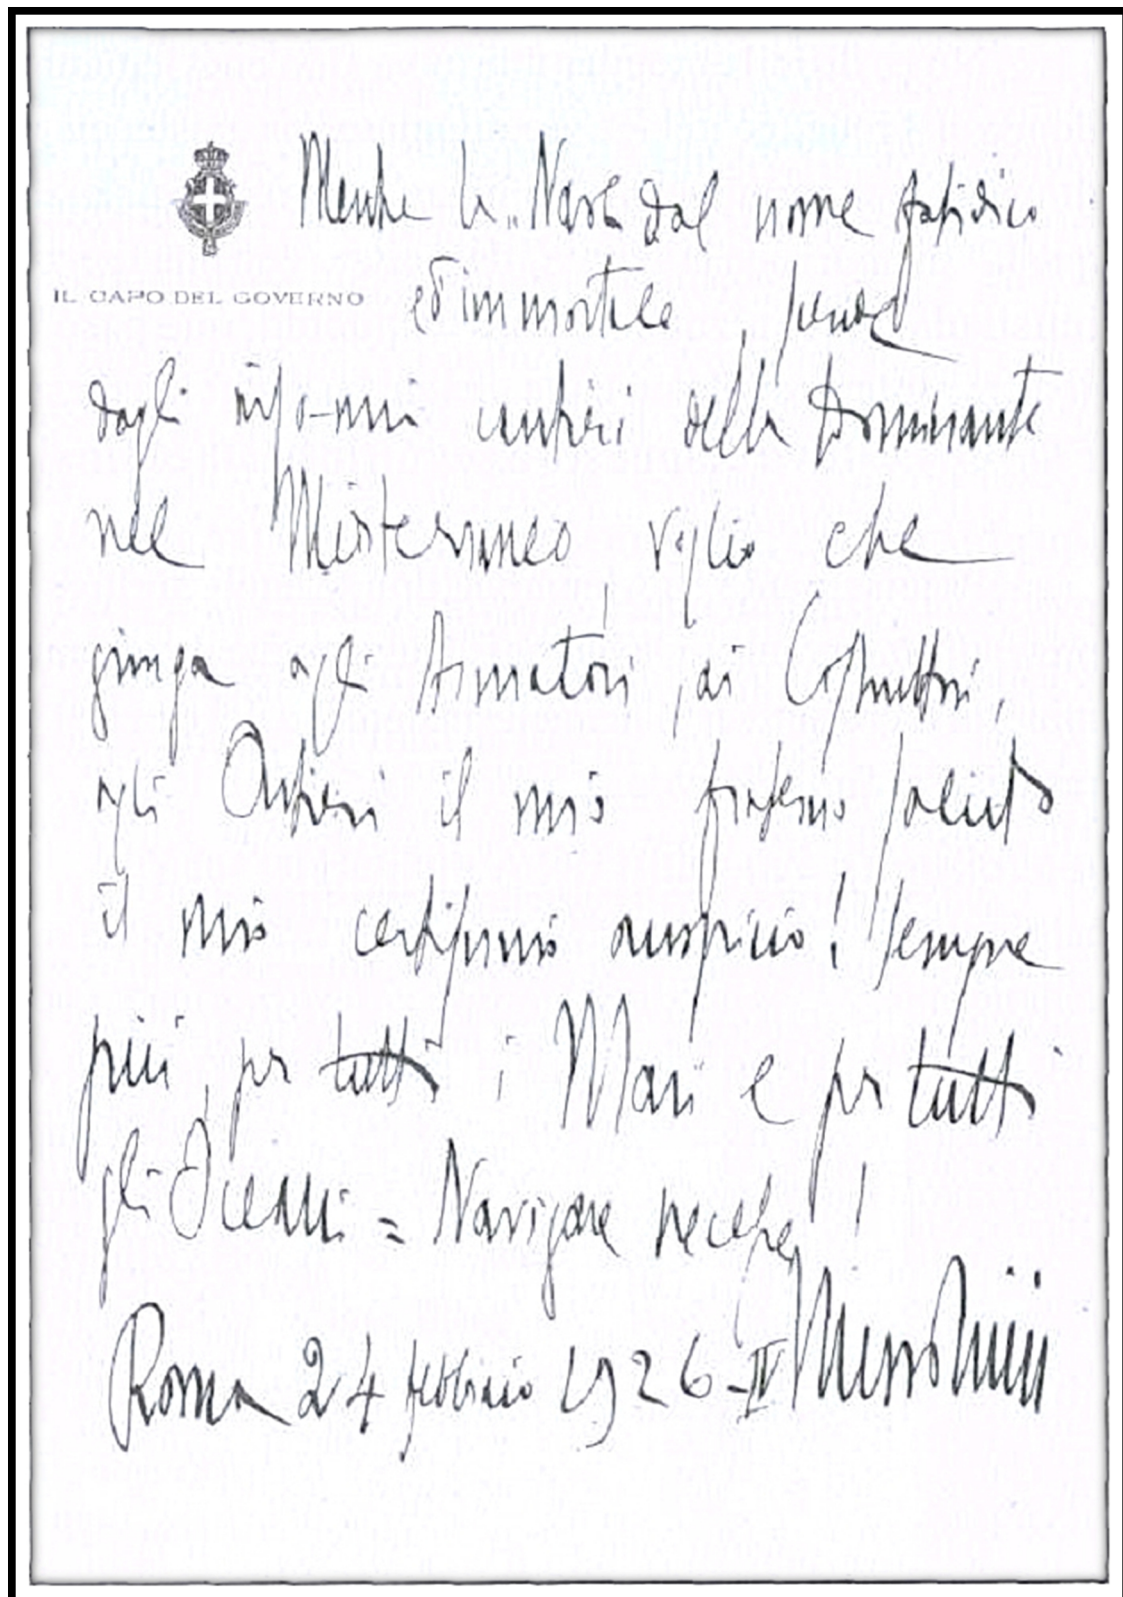 Mentre la „Nave dal nome fatidico
IL CAPO DEL GOVERNO
ed immortale, scende
dagli operosi cantieri della Dominante
nel Mediterraneo, voglio che
giunga agli Armatori, ai Costruttori,
agli Artieri il mio fraterno saluto
il mio certissimo auspicio! Sempre
più, per tutti i Mari e per tutti
gli Oceani = Navigare necesse!
Roma 24 febbraio 1926-IV Mussolini